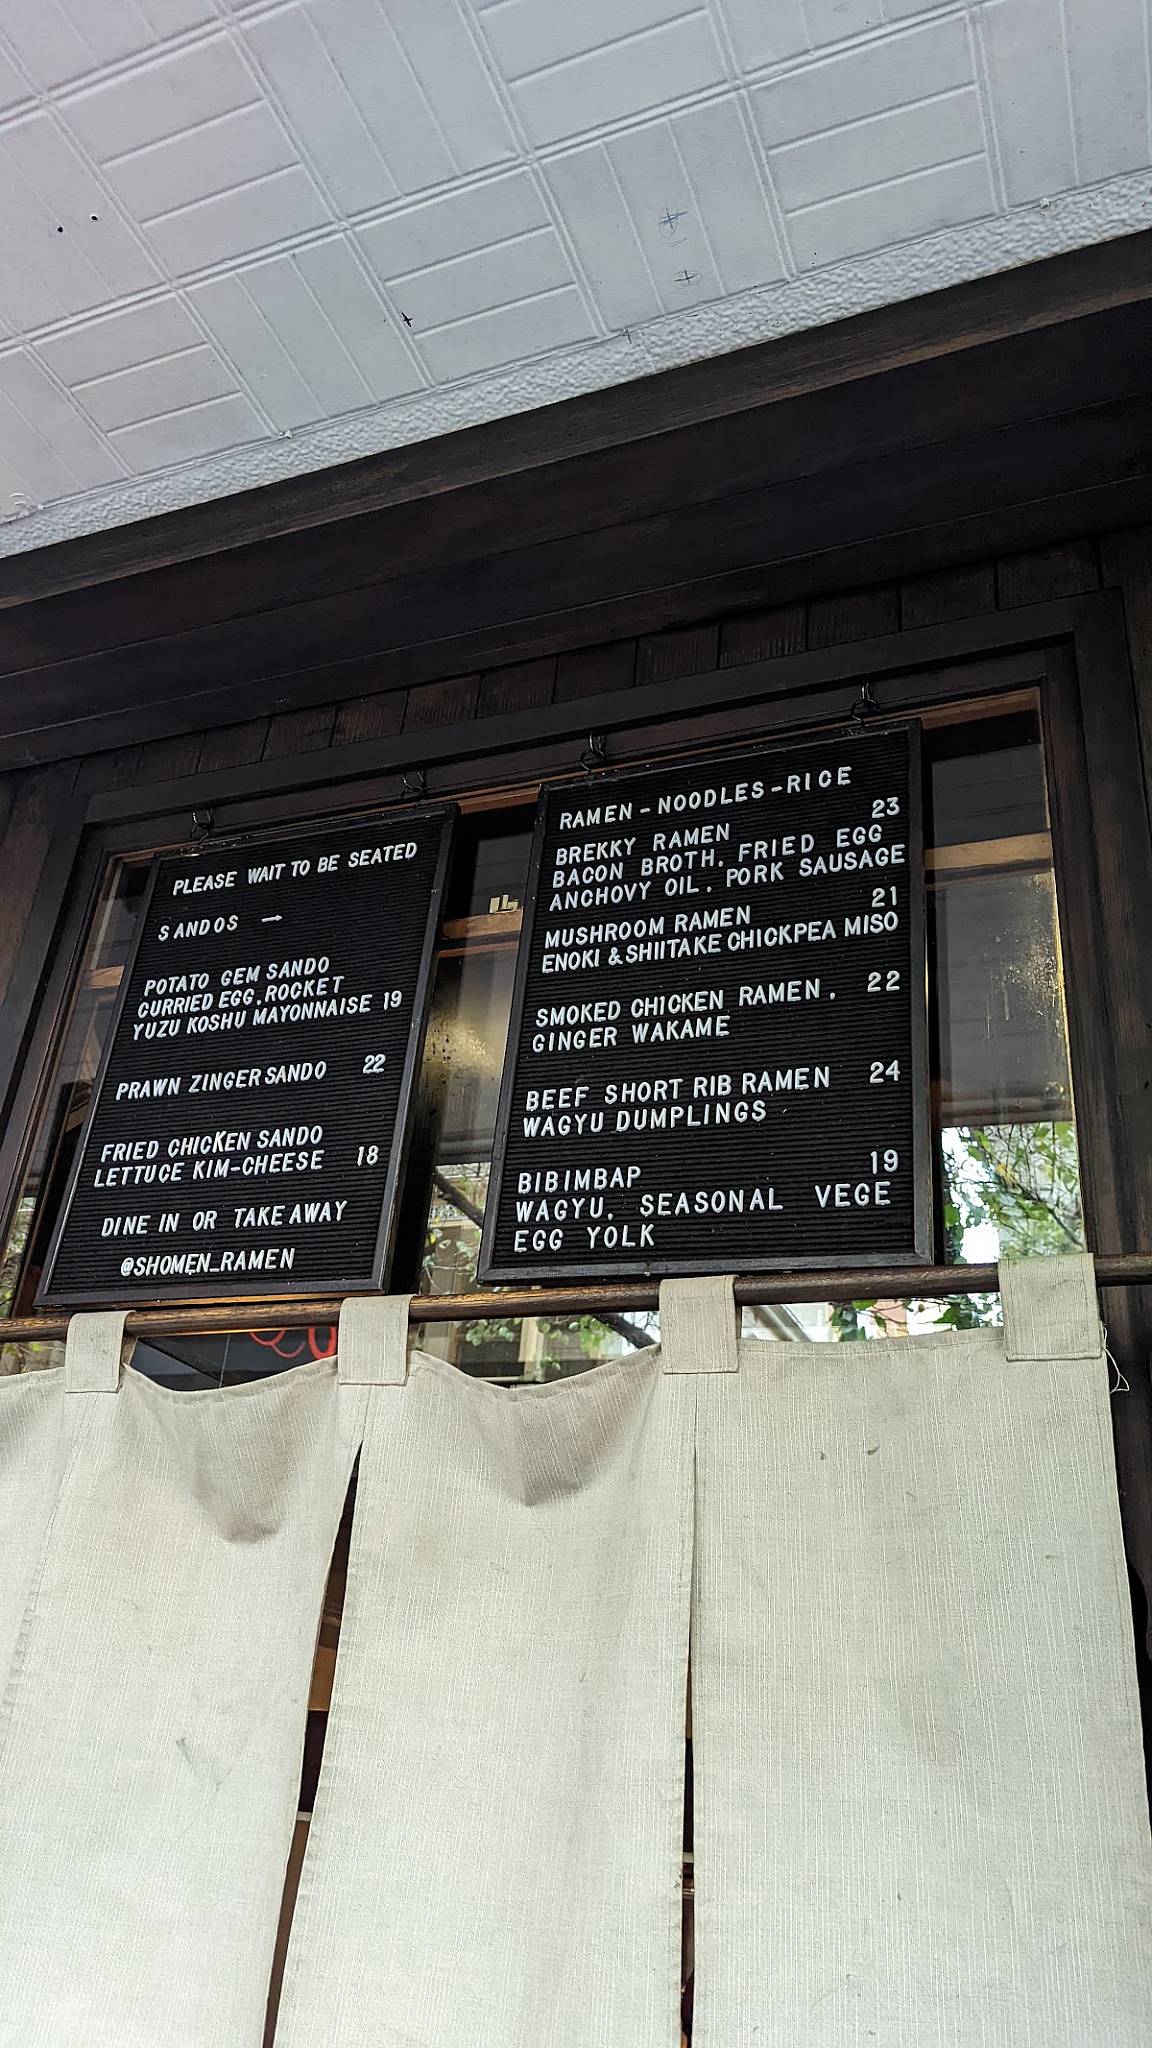 PLEASE WAIT TO BE SEATED
SANDOS →
POTATO GEM SANDO
CURRIED EGG, ROCKET
YUZU KOSHU MAYONNAISE 19
PRAWN ZINGER SANDO 22
FRIED CHICKEN SANDO
LETTUCE KIM-CHEESE 18
DINE IN OR TAKE AWAY
@SHOMEN_RAMEN
RAMEN - NOODLES - RICE
BREKKY RAMEN 23
BACON BROTH, FRIED EGG
ANCHOVY OIL, PORK SAUSAGE
MUSHROOM RAMEN 21
ENOKI & SHIITAKE CHICKPEA MISO
SMOKED CHICKEN RAMEN, 22
GINGER WAKAME
BEEF SHORT RIB RAMEN 24
WAGYU DUMPLINGS
BIBIMBAP 19
WAGYU, SEASONAL VEGE
EGG YOLK